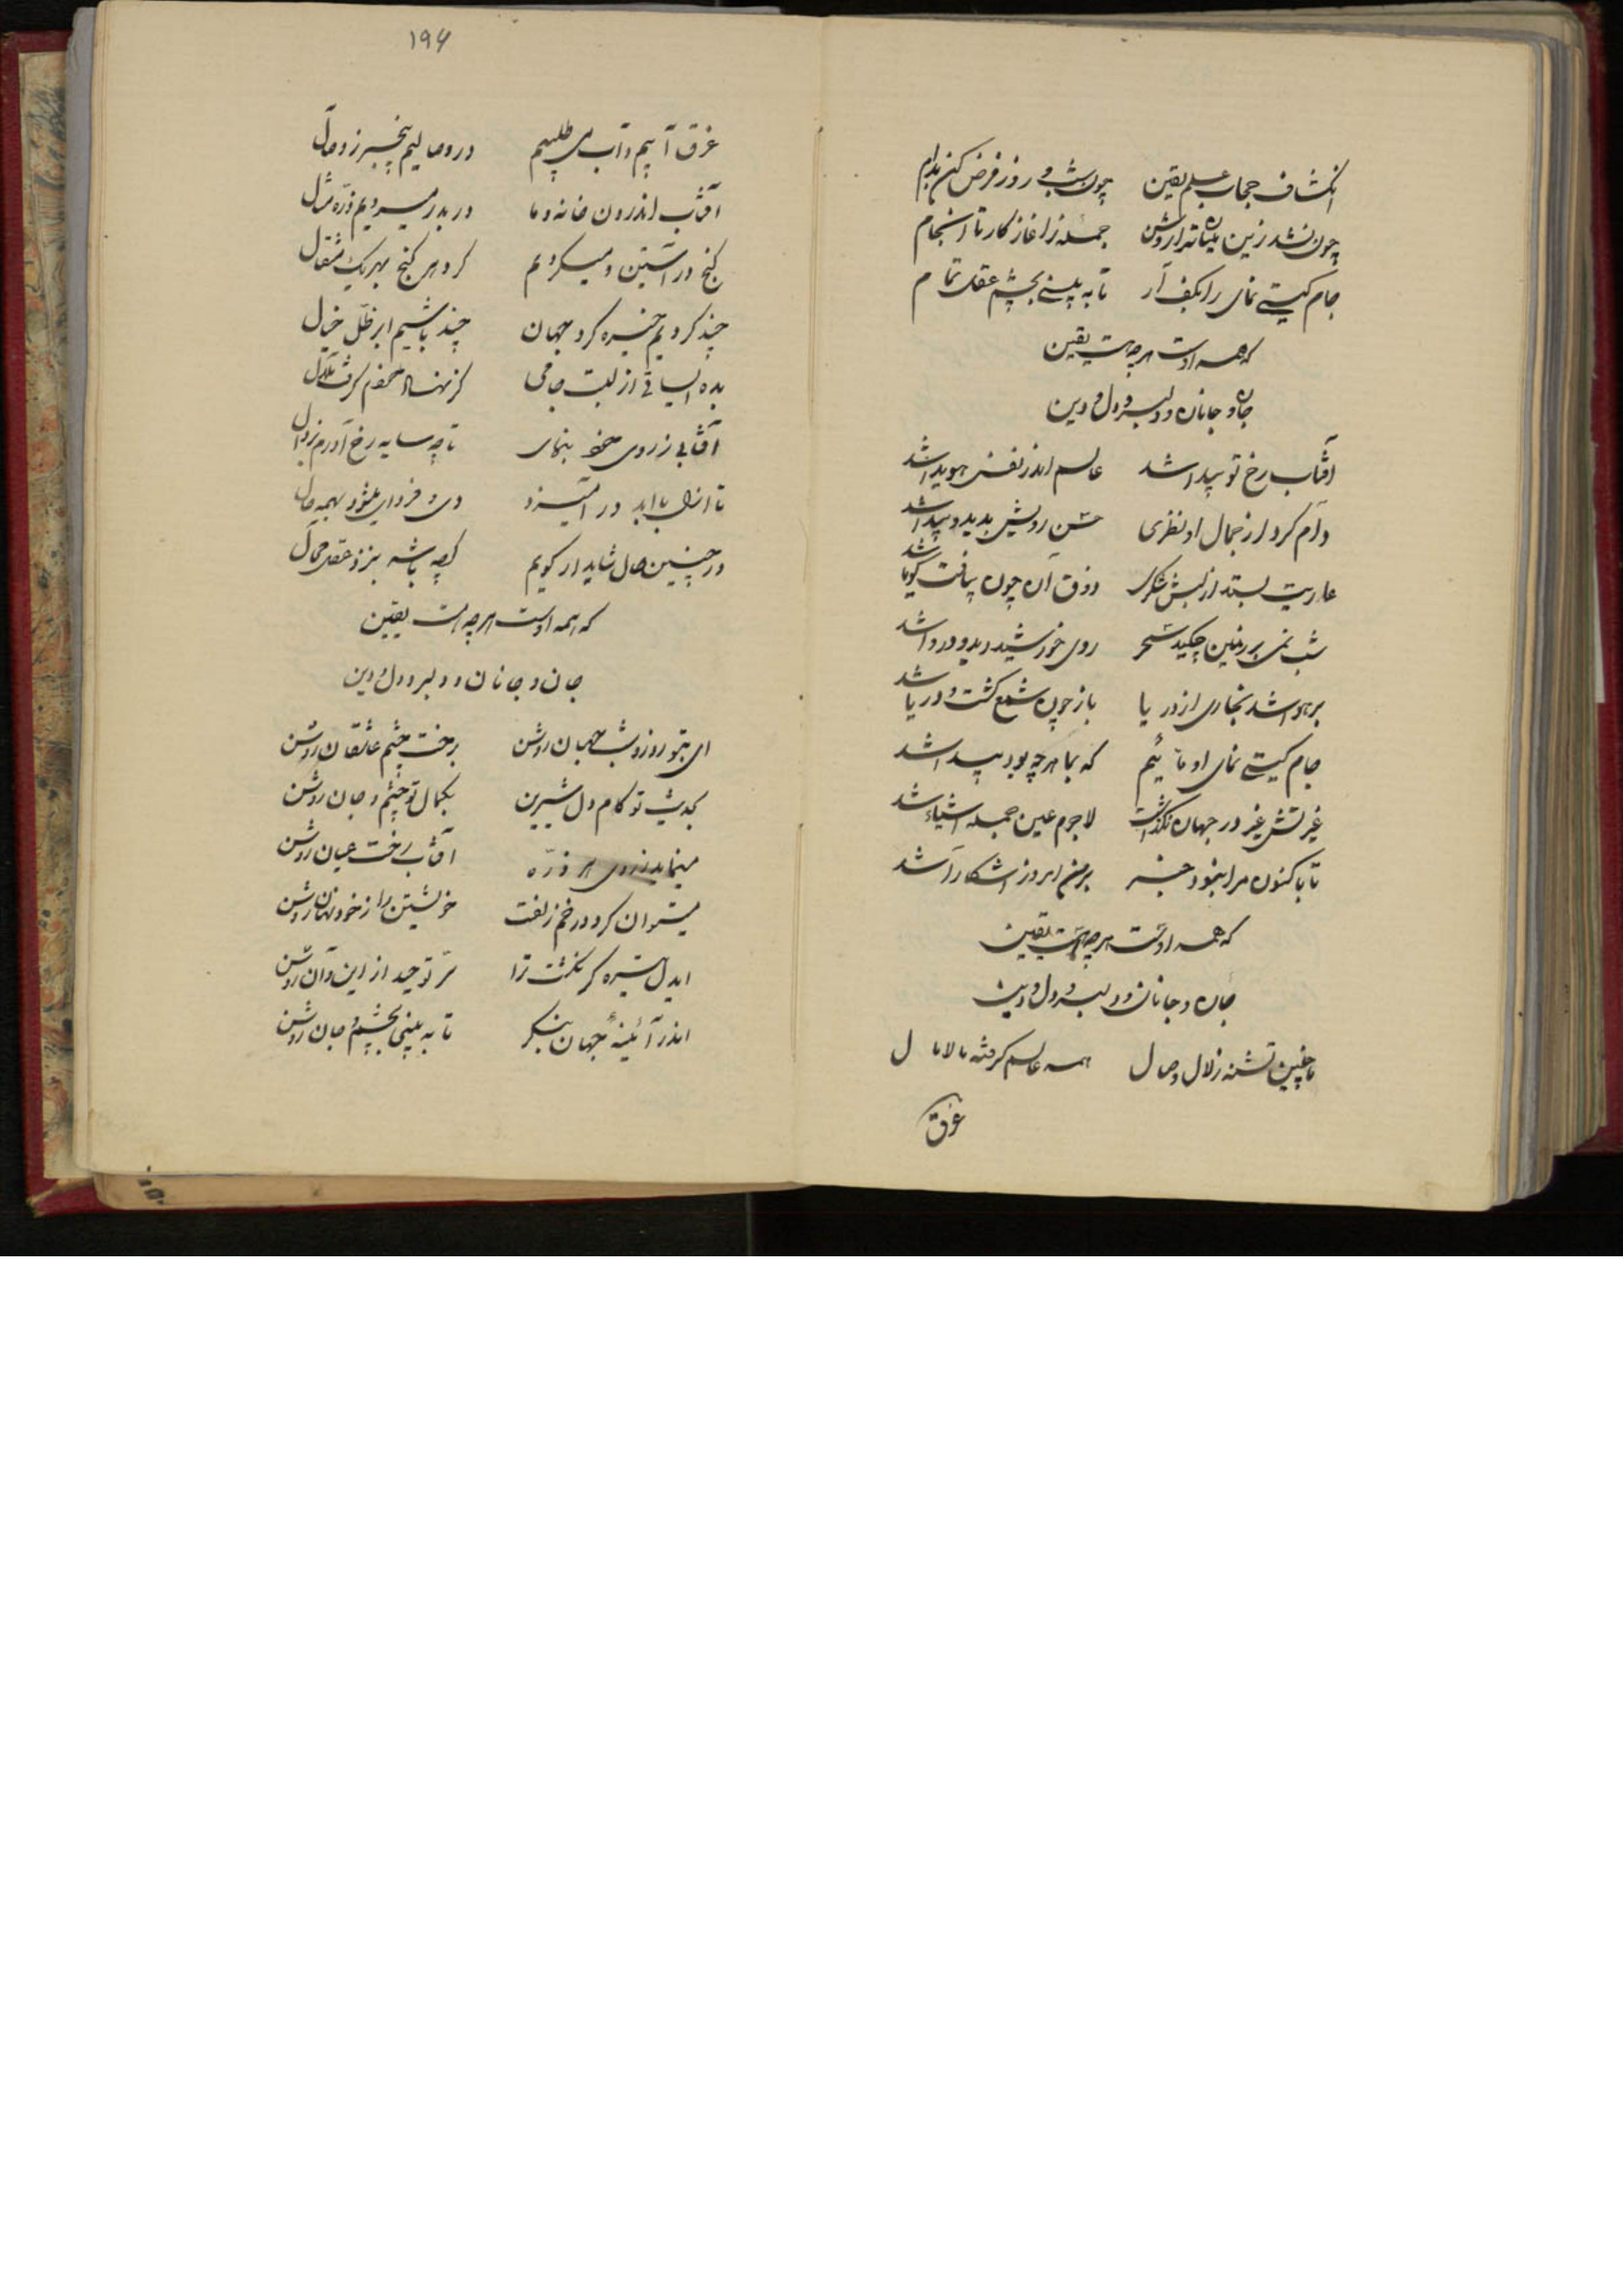 انکشاف حجاب علم یقین چون شب و روز فرض کن مادام
چون نشد زین بیان ترا روشن جمله ز اغاز کار تا انجام
جام کیتی نمای را بکف آر تا به بینی بچشم عقل تمام
که همه اوست هرچه هست یقین
جان و جانان و دلبر و دل و دین
آفتاب رخ تو پیدا شد عالم اندر نفس هویدا شد
وام کرد از جمال او نظری حسن رویش بدید و شیدا شد
عاریت بستد از لبش شکری ذوق آن چون بیافت گویا شد
شب نمی بر زمین چکید سحر روی خورشید دید و دروا شد
بر هوا شد بخاری از دریا باز چون جمع گشت و دریا شد
جام کیتی نمای او مائیم که بما هرچه بود پیدا شد
غیرتش غیر در جهان نگذاشت لاجرم عین جمله اشیاء شد
تا باکنون مرا نبود خبر بر من امروز اشکارا شد
که همه اوست هرچه هست یقین
جان و جانان و دلبر و دل و دین
ما چنین تشنه زلال وصال همه عالم گرفته مالامال
غرق
۱۹۴
غرق آبیم و آب می طلبیم در وصالیم بیخبر ز وصال
آفتاب اندرون خانه و ما در بدر میرویم ذره مثال
گنج در آستین و میگردیم گرد هر کنج بهر یک مثقال
چند گردیم خیره گرد جهان چند باشیم ابر ظل خیال
بده ای ساقی از لبت جامی کز نهاد خودم گرفت ملال
آفتابی ز روی خود بنمای تا چه سایه رخ آورم بزوال
تا ازل با ابد در آمیزد دی و فردای ما شود همه حال
در چنین حال شاید ار گویم گرچه باشد بنزد عقل محال
که همه اوست هرچه هست یقین
جان و جانان و دلبر و دل و دین
ای بتو روز و شب جهان روشن برخت چشم عاشقان روشن
بحدیث تو کام دل شیرین بکمال تو چشم و جان روشن
مینماید ز روی هر ذره آفتاب رخت عیان روشن
میتوان کرد در خم زلفت خویشتن را ز خود نهان روشن
ایدل تیره گر نگشت ترا سر توحید از این و آن روشن
اندر آئینهٔ جهان بنگر تا به بینی بچشم جان روشن